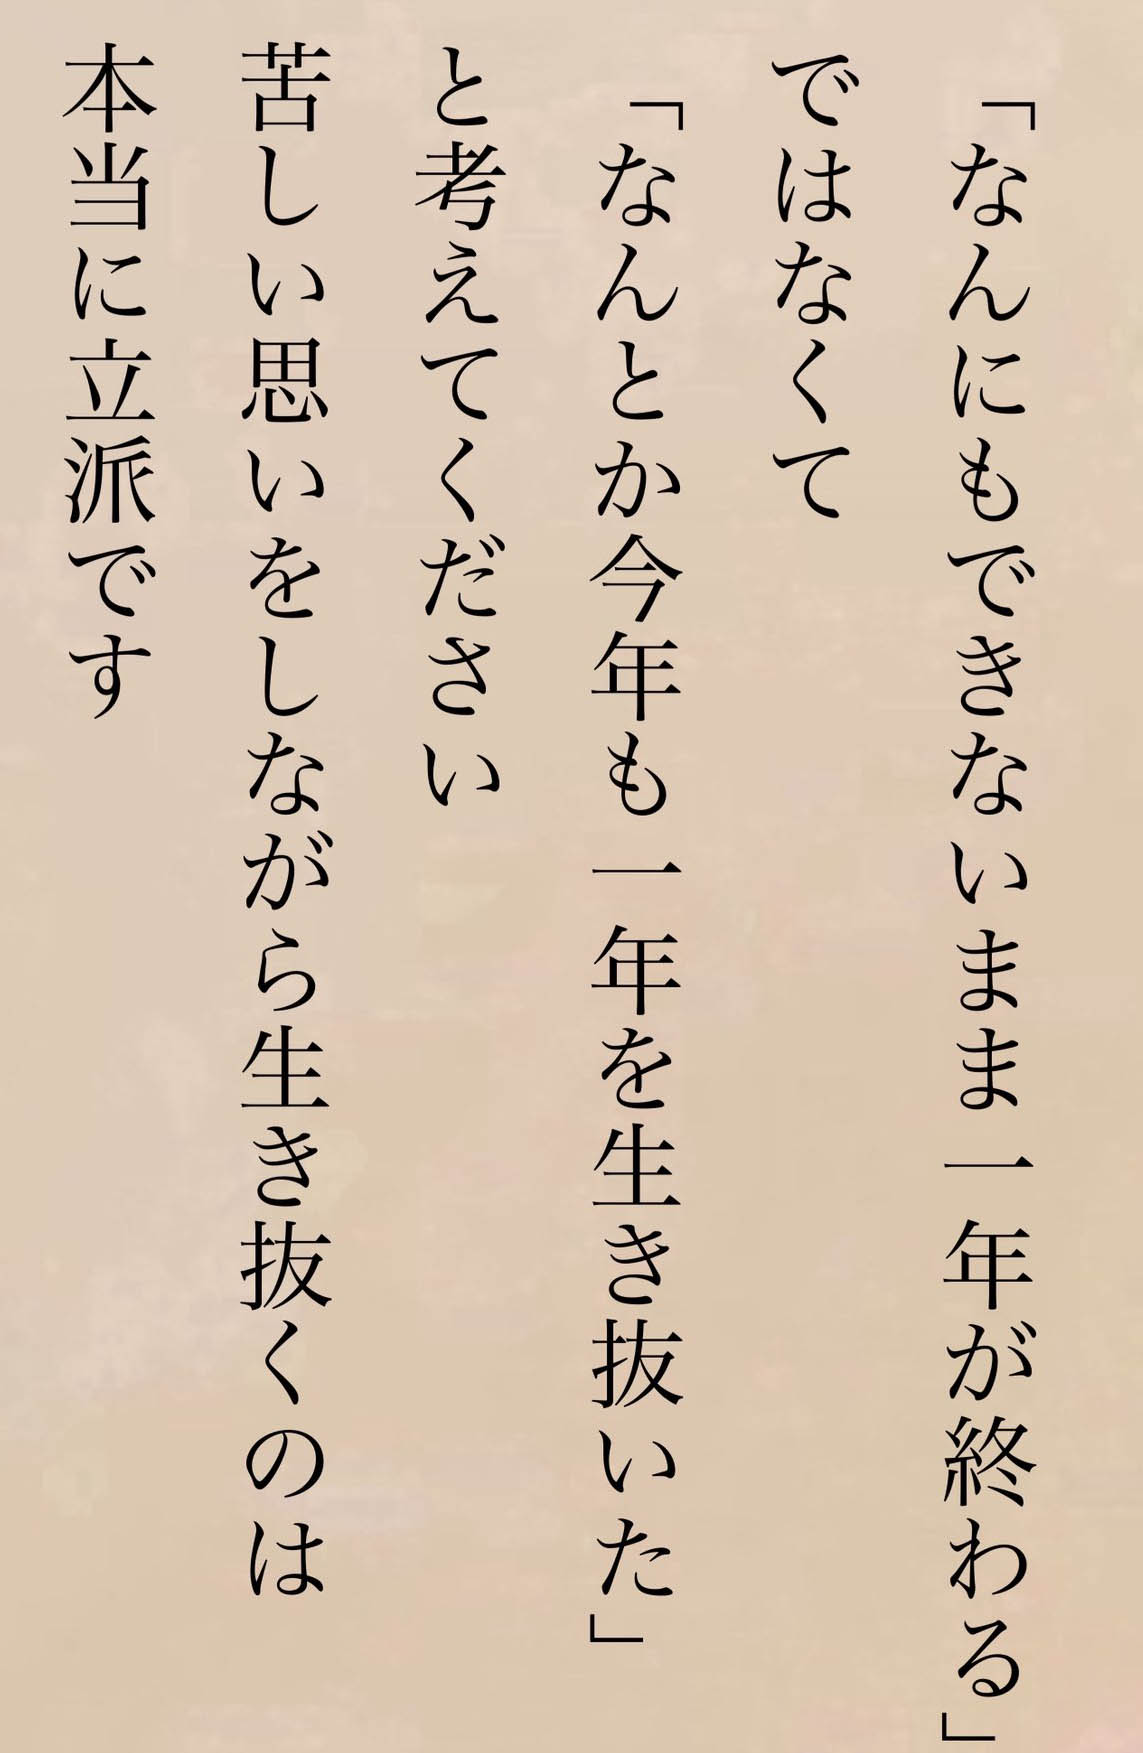 「なんにもできないまま一年が終わる」
ではなくて
「なんとか今年も一年を生き抜いた」
と考えてください
苦しい思いをしながら生き抜くのは
本当に立派です